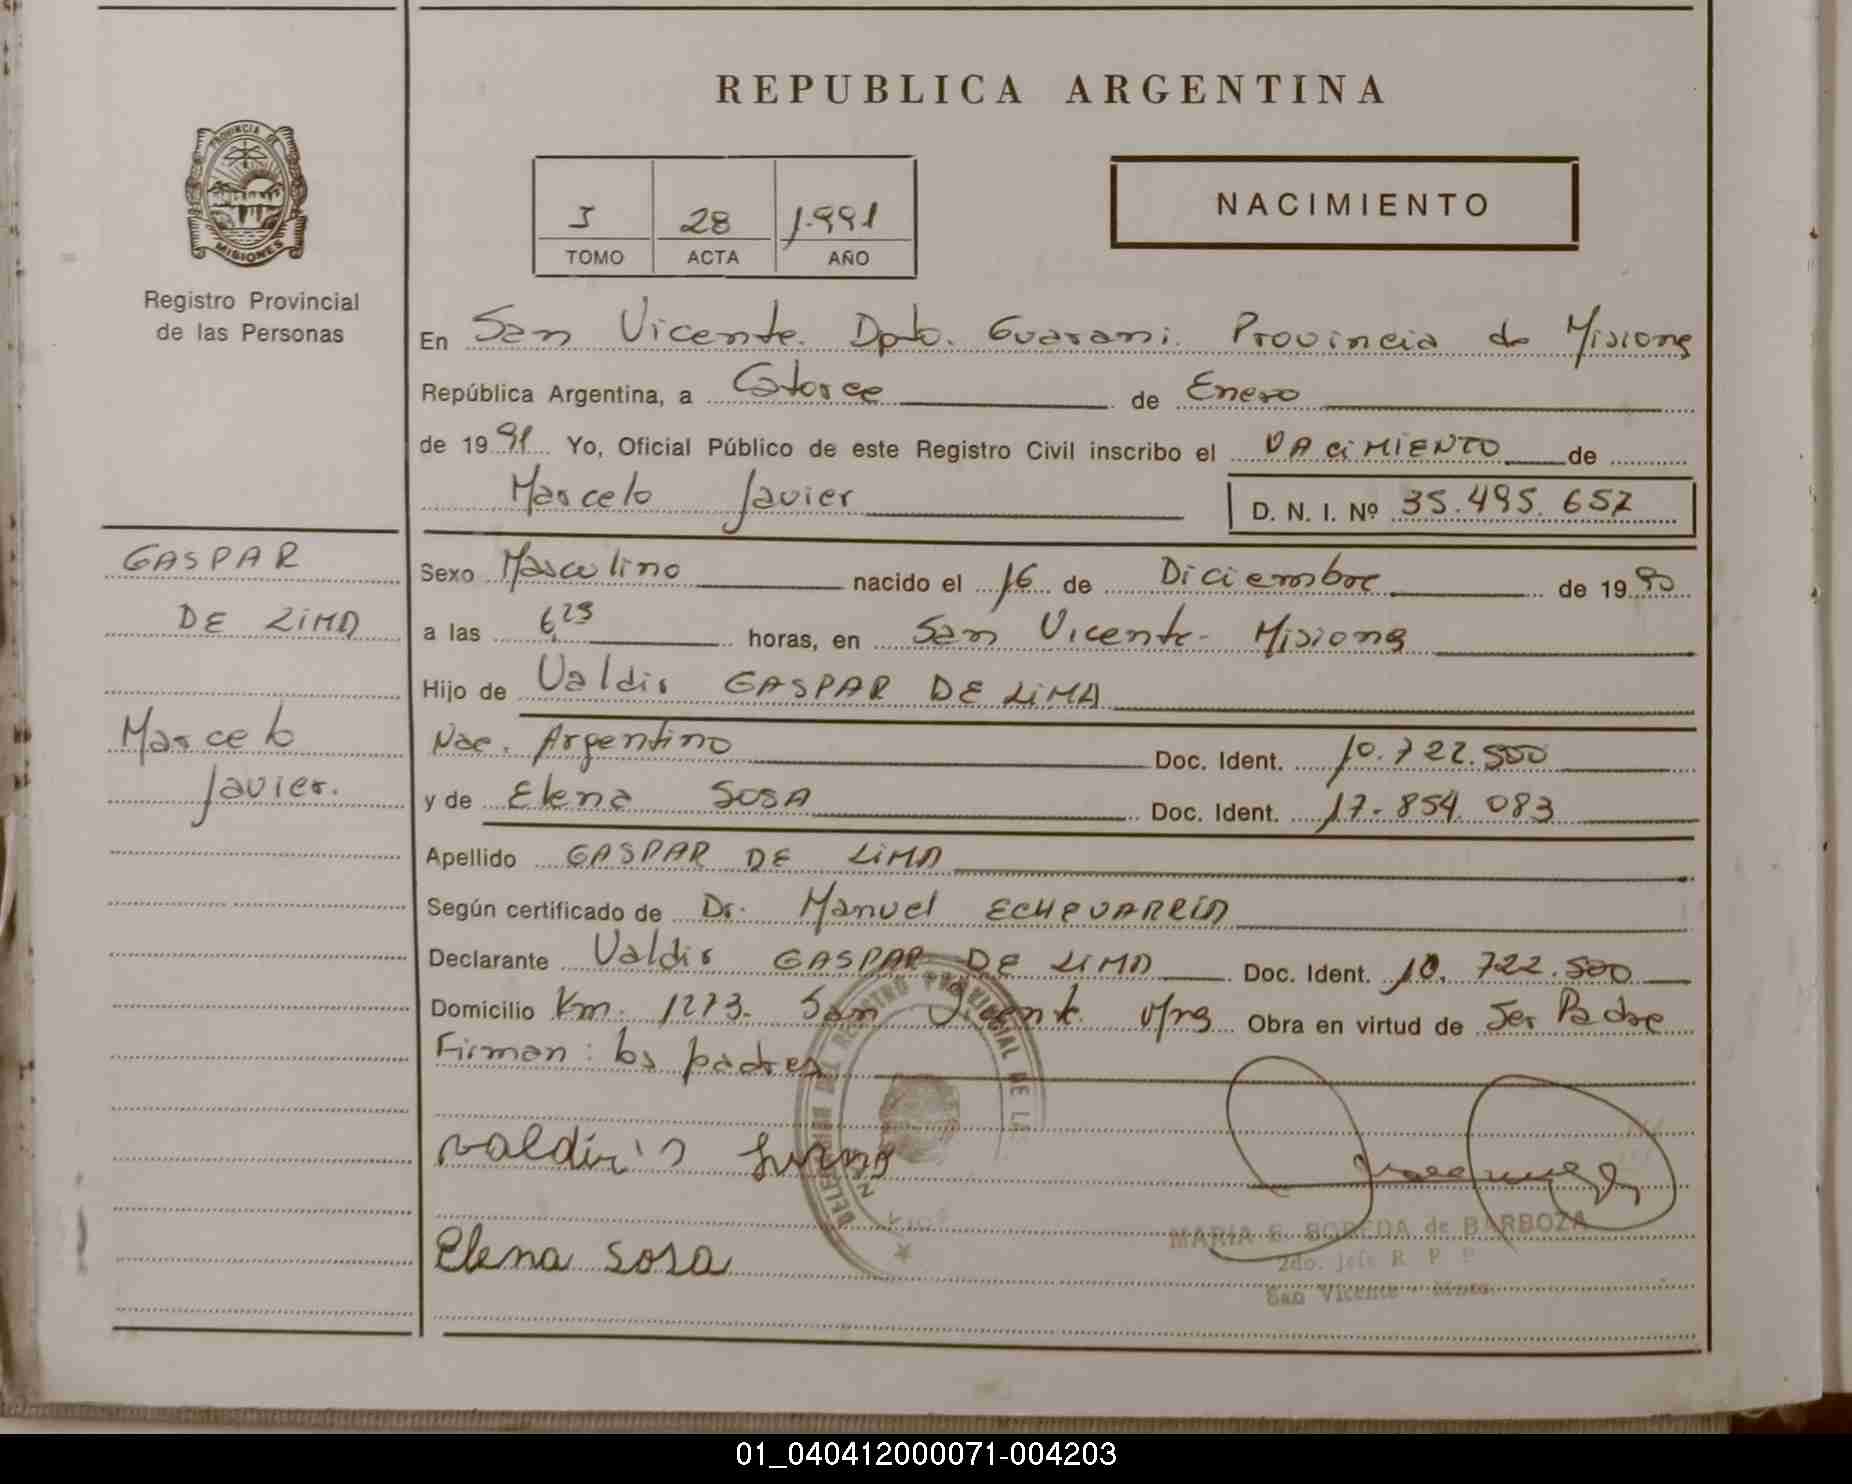 REPUBLICA ARGENTINA
PROVINCIA DE
MISIONES
Registro Provincial
de las Personas
I 28 1.991
TOMO ACTA AÑO
NACIMIENTO
En San Vicente. Dpto. Guarani. Provincia de Misiones
República Argentina, a Catorce de Enero
de 1991 Yo, Oficial Público de este Registro Civil inscribo el NACIMIENTO de
Marcelo Javier D. N. I. Nº 35.495.657
GASPAR
DE LIMA
Marcelo
Javier.
Sexo Masculino nacido el 16 de Diciembre de 1990
a las 6,25 horas, en San Vicente - Misiones
Hijo de Valdir GASPAR DE LIMA
Nac. Argentino Doc. Ident. 10.722.500
y de Elena SOSA Doc. Ident. 17.854.083
Apellido GASPAR DE LIMA
Según certificado de Dr. Manuel ECHEVARRIA
Declarante Valdir GASPAR DE LIMA Doc. Ident. 10.722.500
Domicilio Km. 1273. San Vicente Mnes Obra en virtud de Ser Padre
Firman: los padres
Elena Sosa
MARIA E. BOREDA de BARBOZA
2do. Jefe R P P
San Vicente - Mnes.
01_040412000071-004203